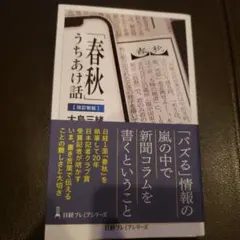 「春秋」
うちあけ話
［改訂新版］
大島三緒
春秋
「バズる」情報の
嵐の中で
新聞コラムを
書くということ
日経1面「春秋」を
執筆して20年
日本記者クラブ賞
受賞記者が明かす
ことの難しさと大切さ
日経プレミアシリーズ
日経プレミアシリーズ